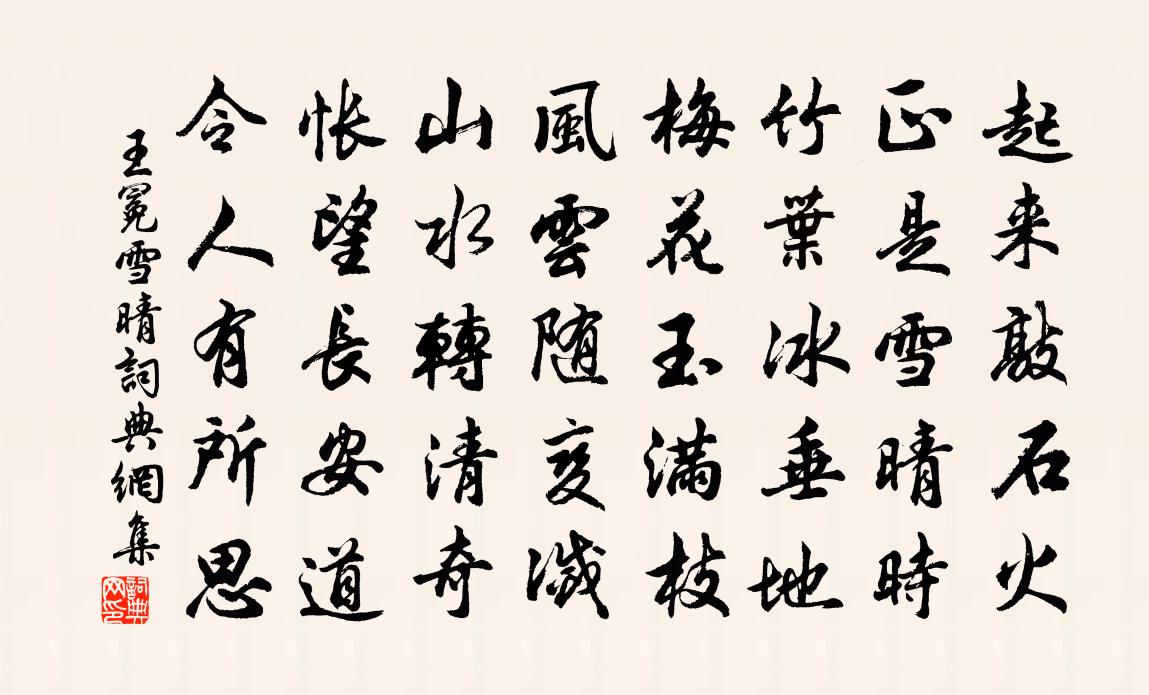 起来敲石火
正是雪晴時
竹葉冰垂地
梅花玉满枝
風雲随变滅
山水轉清奇
悵望長安道
令人有所思
王冕雪晴詞典網集
詞典网印